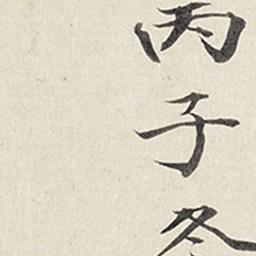 丙子冬